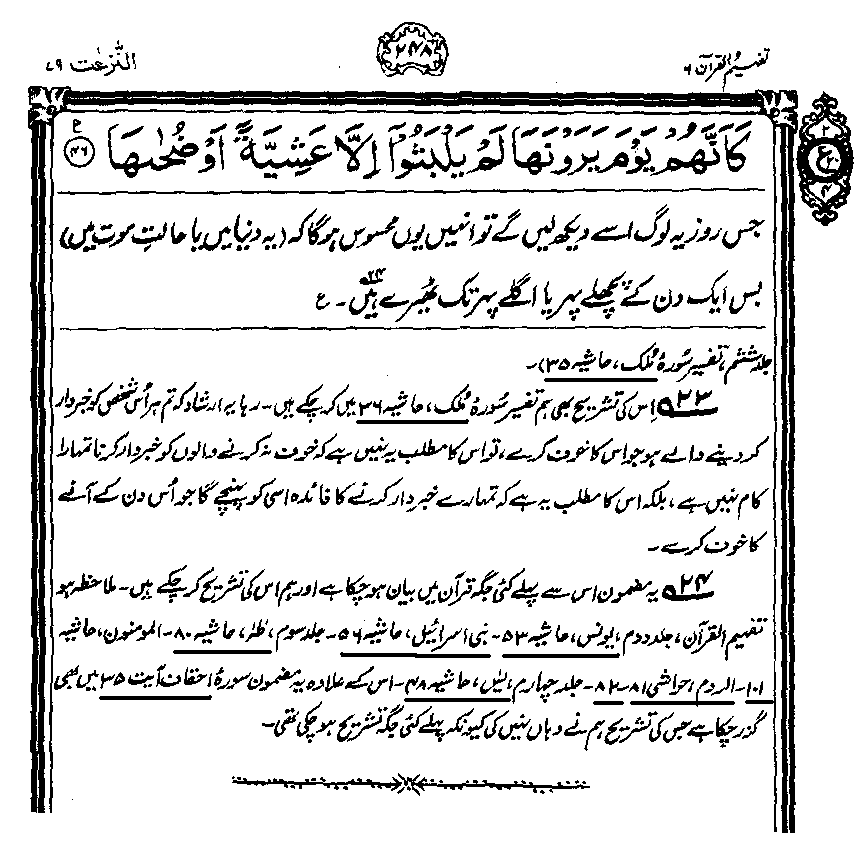 تفہیم القرآن ۶
۲۴۸
النّٰزعٰت ۷۹
كَاَنَّهُمْ يَوْمَ يَرَوْنَهَا لَمْ يَلْبَثُوْٓا اِلَّا عَشِيَّةً اَوْ ضُحٰىهَا ۴۶ ع
جس روز یہ لوگ اسے دیکھ لیں گے تو انہیں یوں محسوس ہوگا کہ (یہ دنیا میں یا حالتِ موت میں)
بس ایک دن کے پچھلے پہر یا اگلے پہر تک ٹھیرے ہیں۲۴۔ ع
جلد ششم، تفسیر سُورۂ مُلک، حاشیہ ۳۵)۔
۲۳ اِس کی تشریح بھی ہم تفسیر سُورۂ مُلک، حاشیہ ۳۶ میں کر چکے ہیں۔ رہا یہ ارشاد کہ تم ہر اُس شخص کو خبردار
کر دینے والے ہو جو اس کا خوف کرے، تو اس کا مطلب یہ نہیں ہے کہ خوف نہ کرنے والوں کو خبردار کرنا تمہارا
کام نہیں ہے، بلکہ اس کا مطلب یہ ہے کہ تمہارے خبردار کرنے کا فائدہ اسی کو پہنچے گا جو اُس دن کے آنے
کا خوف کرے۔
۲۴ یہ مضمون اس سے پہلے کئی جگہ قرآن میں بیان ہو چکا ہے اور ہم اس کی تشریح کر چکے ہیں۔ ملاحظہ ہو
تفہیم القرآن، جلد دوم، یونس، حاشیہ ۵۳۔ بنی اسرائیل، حاشیہ ۵۶۔ جلد سوم، طٰہٰ، حاشیہ ۸۰۔ المومنون، حاشیہ
۱۰۱۔ الروم، حواشی ۸۱-۸۲۔ جلد چہارم، یٰس، حاشیہ ۴۸۔ اس کے علاوہ یہ مضمون سورۂ احقاف آیت ۳۵ میں بھی
گزر چکا ہے جس کی تشریح ہم نے وہاں نہیں کی کیونکہ پہلے کئی جگہ تشریح ہو چکی تھی۔